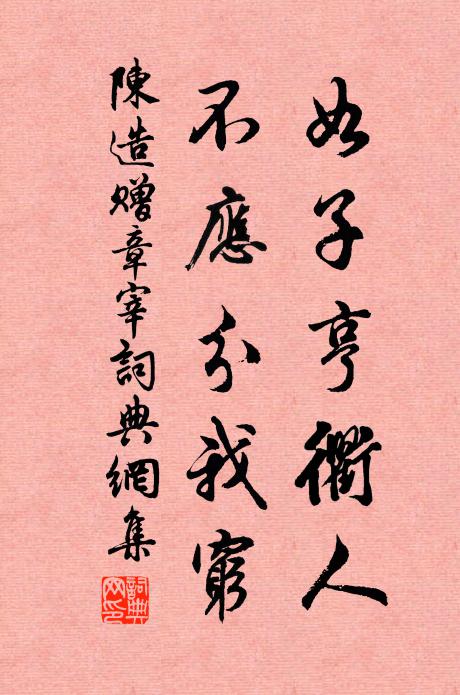 如子亨衢人
不應分我窮
陳造贈章宰詞典網集
詞典網印